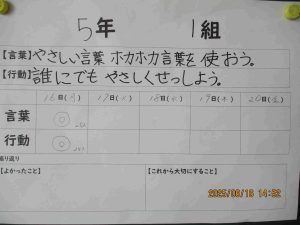 5年 1組
【言葉】やさしい言葉 ホカホカ言葉を 使おう。
【行動】誰にでも やさしくせっしよう。
16日(月) 17日(火) 18日(水) 19日(木) 20日(金)
言葉 ◎
行動 ◎
振り返り
【よかったこと】 【これから大切にすること】
2025/06/16 14:52